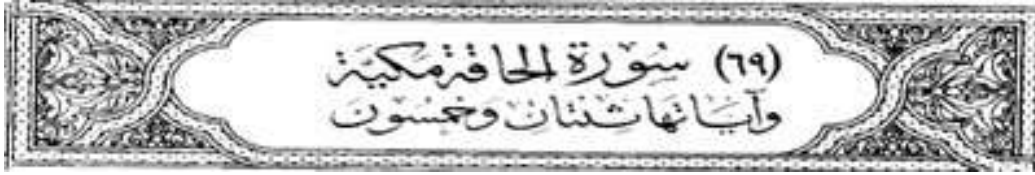 (٦٩) سورة الحاقة مكية
وآياتها ثنتان وخمسون